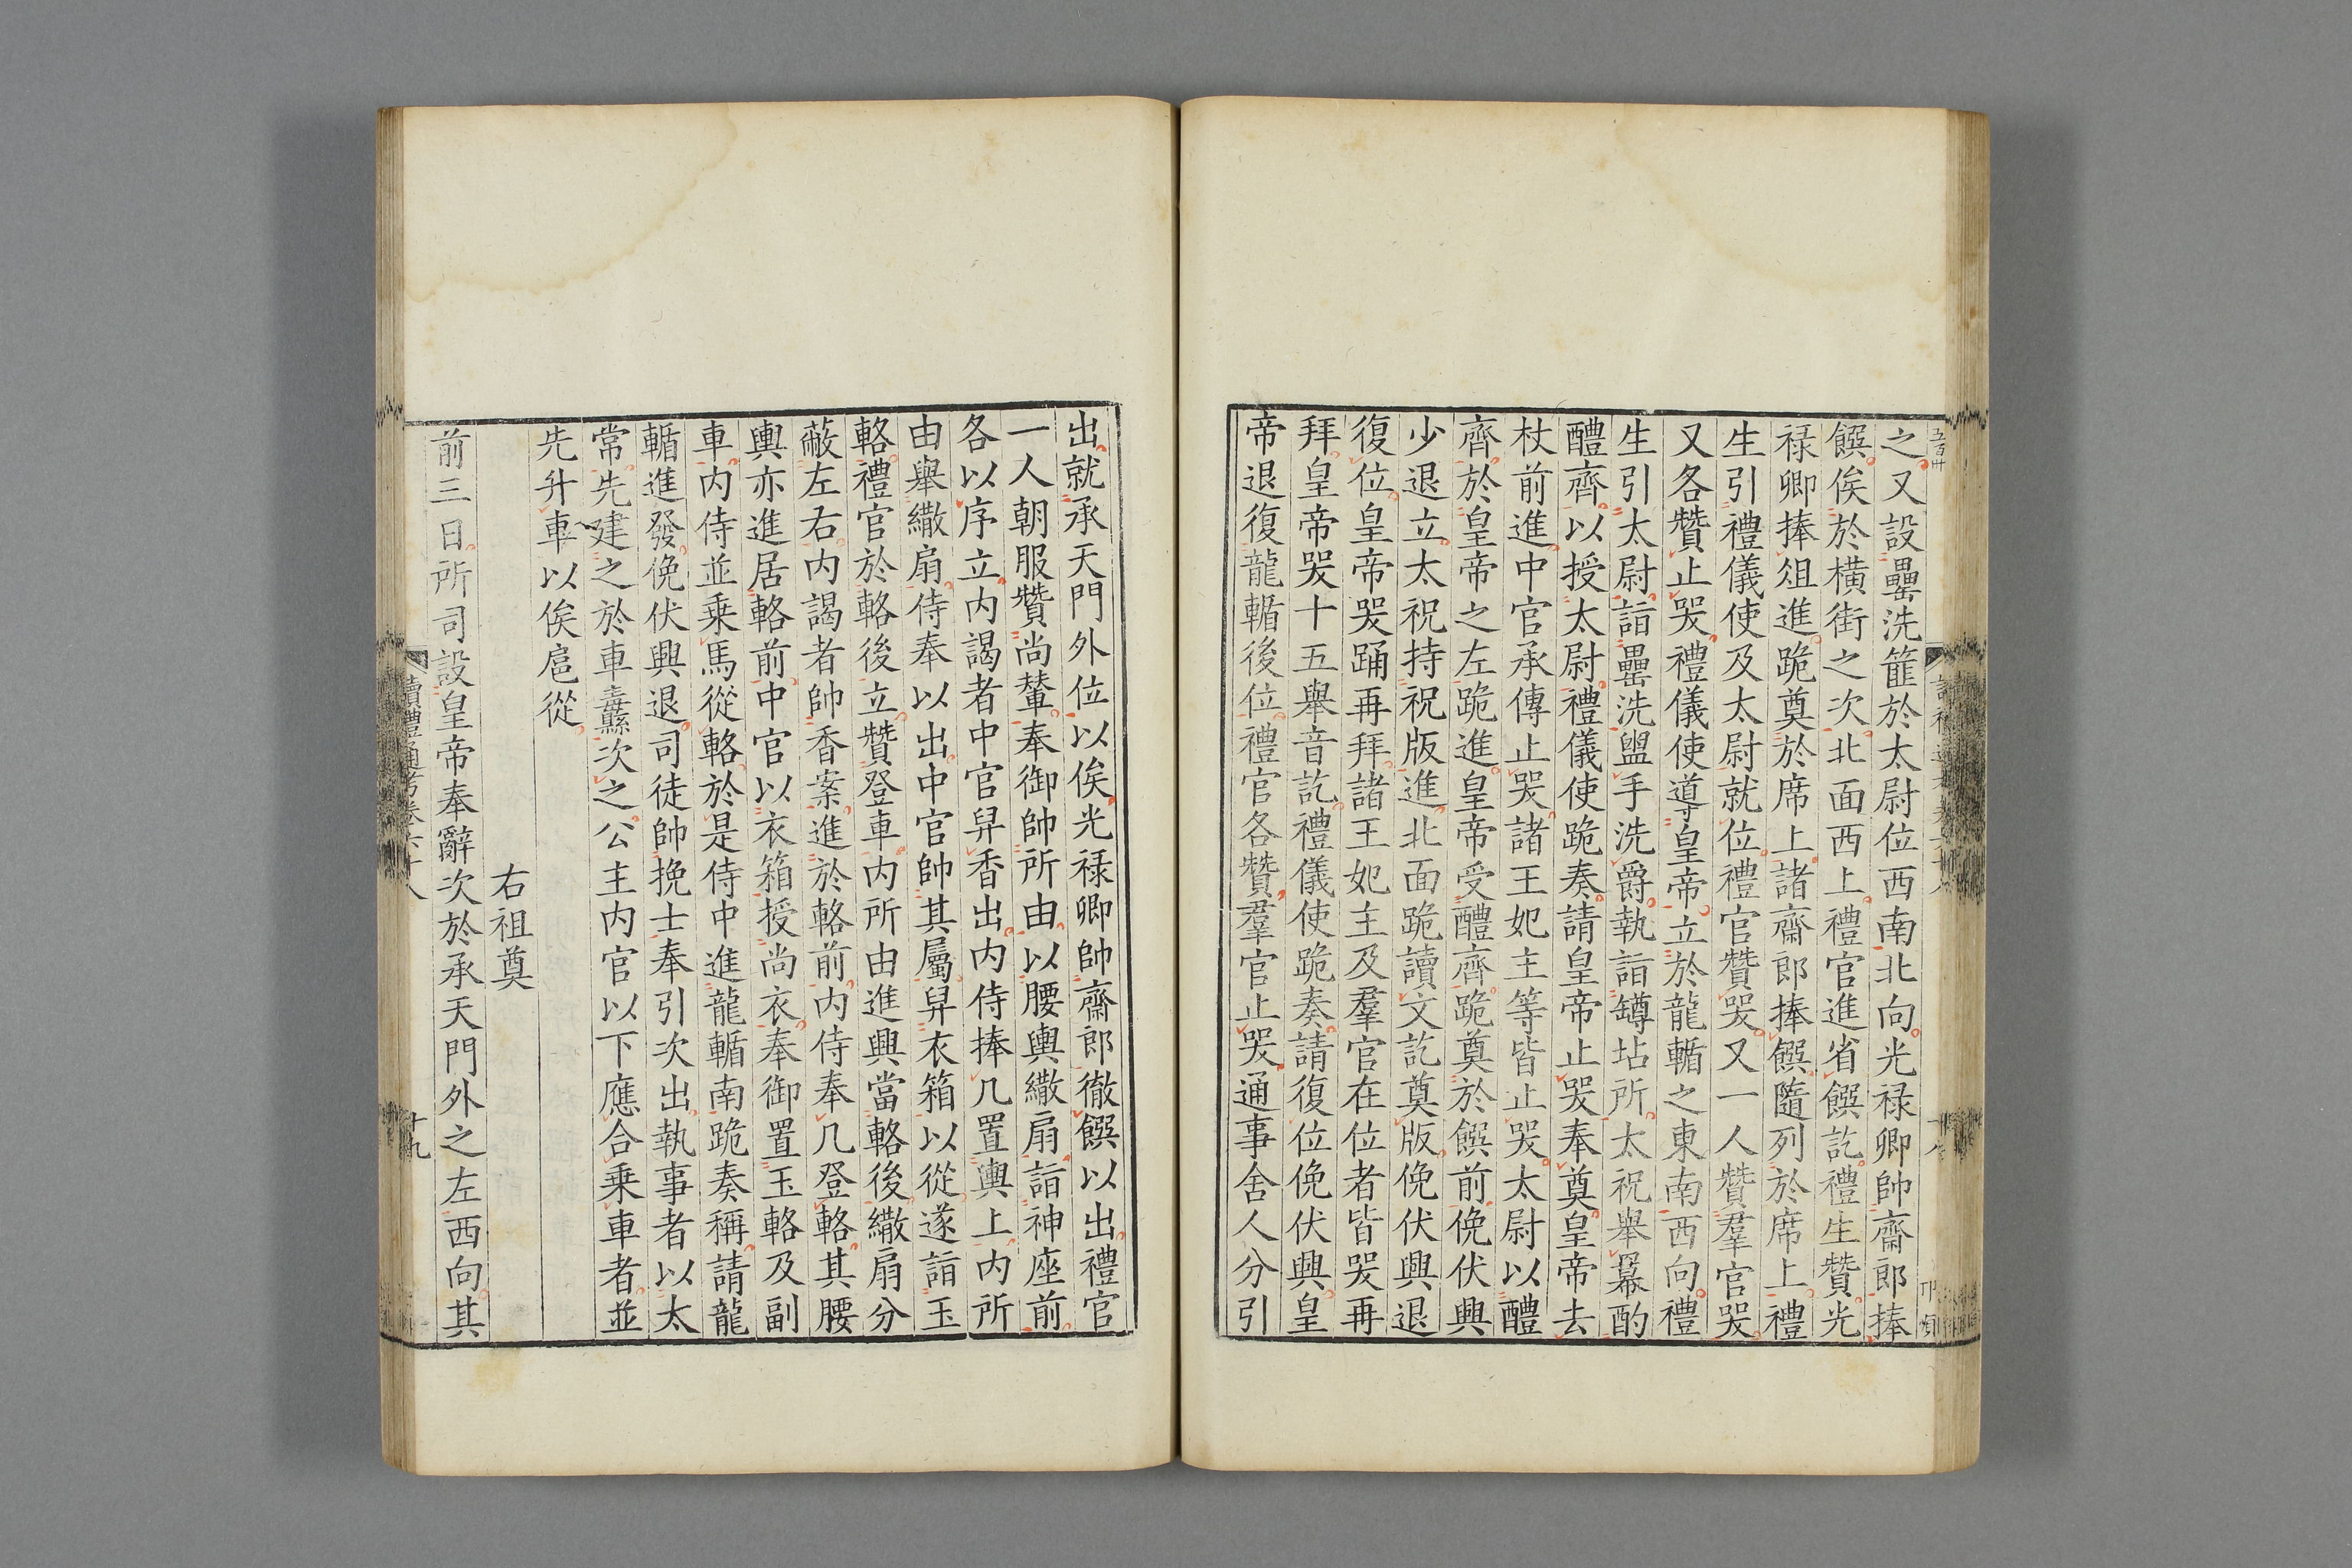 之又設罍洗篚於太尉位西南北向光禄卿帥齋郎捧
饌俟於橫街之次北面西上禮官進省饌訖禮生贊光
禄卿捧俎進跪奠於席上諸齋郎捧饌隨列於席上禮
生引禮儀使及太尉就位禮官贊哭又一人贊羣官哭
又各贊止哭禮儀使導皇帝立於龍輴之東南西向禮
生引太尉詣罍洗盥手洗爵執詣罇坫所太祝舉羃酌
醴齊以授太尉禮儀使跪奏請皇帝止哭奉奠皇帝去
杖前進中官承傳止哭諸王妃主等皆止哭太尉以醴
齊於皇帝之左跪進皇帝受醴齊跪奠於饌前俛伏興
少退立太祝持祝版進北面跪讀文訖奠版俛伏興退
復位皇帝哭踊再拜諸王妃主及羣官在位者皆哭再
拜皇帝哭十五舉音訖禮儀使跪奏請復位俛伏興皇
帝退復龍輴後位禮官各贊羣官止哭通事舍人分引
出就承天門外位以俟光禄卿帥齋郎徹饌以出禮官
一人朝服贊尚輦奉御帥所由以腰輿繖扇詣神座前
各以序立内謁者中官舁香出内侍捧几置輿上内所
由舉繖扇侍奉以出中官帥其屬舁衣箱以從遂詣玉
輅禮官於輅後立贊登車内所由進興當輅後繖扇分
蔽左右内謁者帥香案進於輅前内侍奉几登輅其腰
輿亦進居輅前中官以衣箱授尚衣奉御置玉輅及副
車内侍並乗馬從輅於是侍中進龍輴南跪奏稱請龍
輴進發俛伏興退司徒帥挽士奉引次出執事者以太
常先建之於車纛次之公主内官以下應合乗車者並
先升車以俟扈從
右祖奠
前三日所司設皇帝奉辭次於承天門外之左西向其
讀禮通考卷六十八
十九